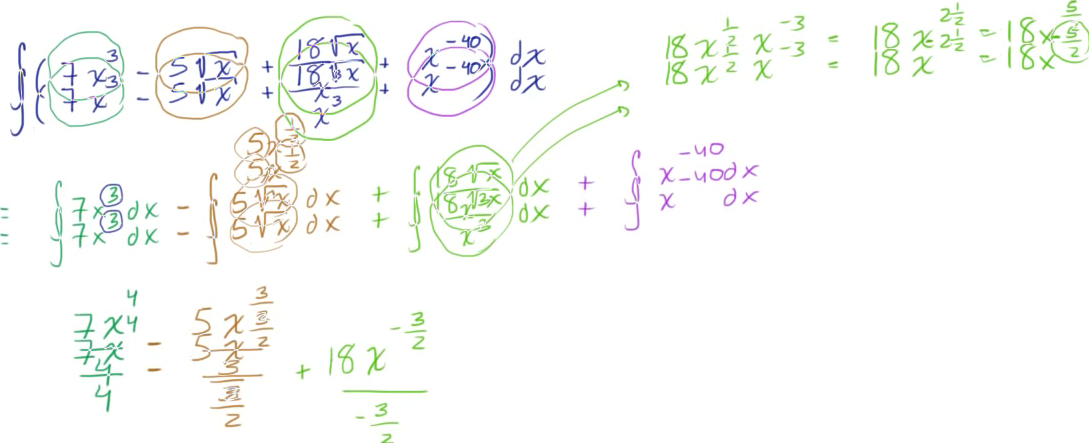 ∫(7x³ − 5√x + 18√x/x³ + x⁻⁴⁰) dx
18x^(1/2) x⁻³ = 18x^(2 1/2) = 18x^(-5/2)
5x^(1/2)
= ∫7x³dx − ∫5√x dx + ∫18√x/x³ dx + ∫x⁻⁴⁰dx
7x⁴/4 − 5x^(3/2)/(3/2) + 18x^(-3/2)/(-3/2)